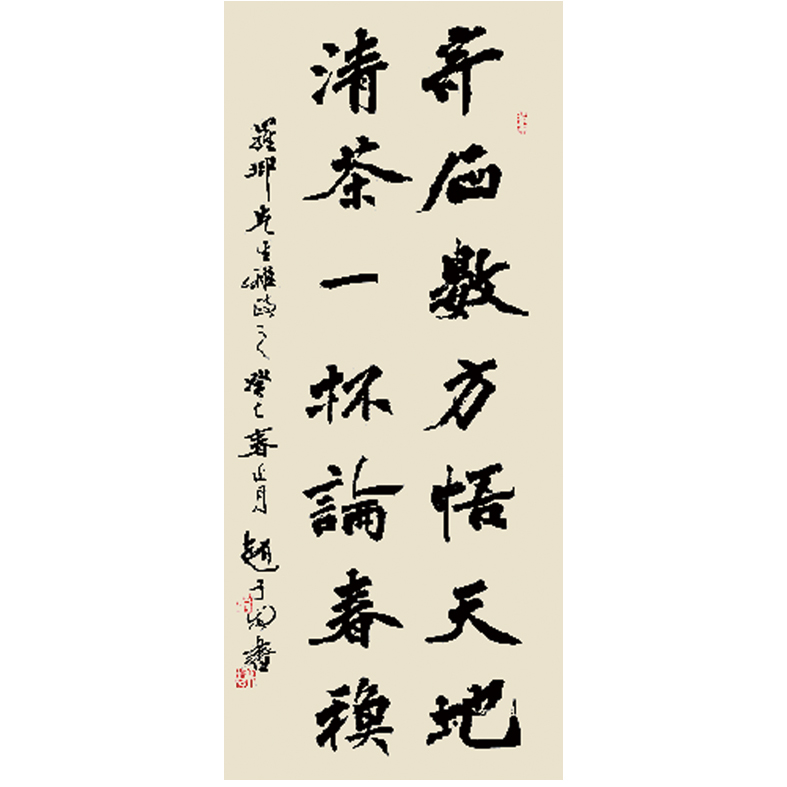 奇石數方悟天地
清茶一杯論春穐
羅先生雅政之癸巳春正月趙書